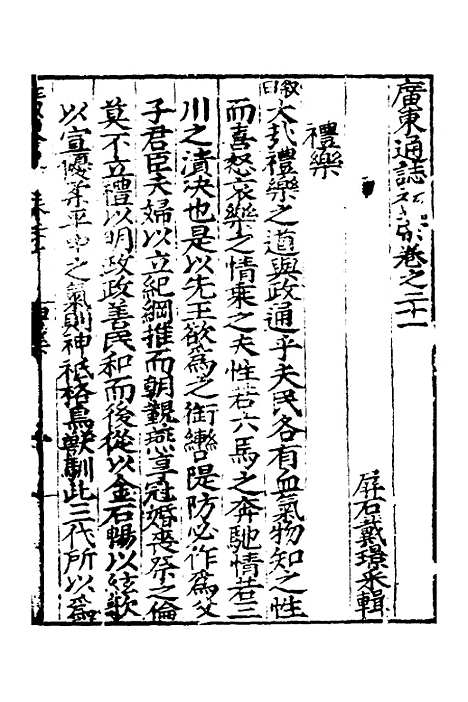 廣東通誌初藁卷之二十一
屏石戴璟采輯
禮樂
叙曰大哉禮樂之道與政通乎夫民各有血氣物知之性
而喜怒哀樂之情乘之夫性若六馬之奔馳情若三
川之潰決也是以先王欲為之銜轡隄防必作為父
子君臣夫婦以立紀綱推而朝覲燕享冠婚喪祭之倫
莫不立禮以明政政善民和而後從以金石暢以絃歌
以宣優柔平中之氣則神祗格鳥獸馴此三代所以為